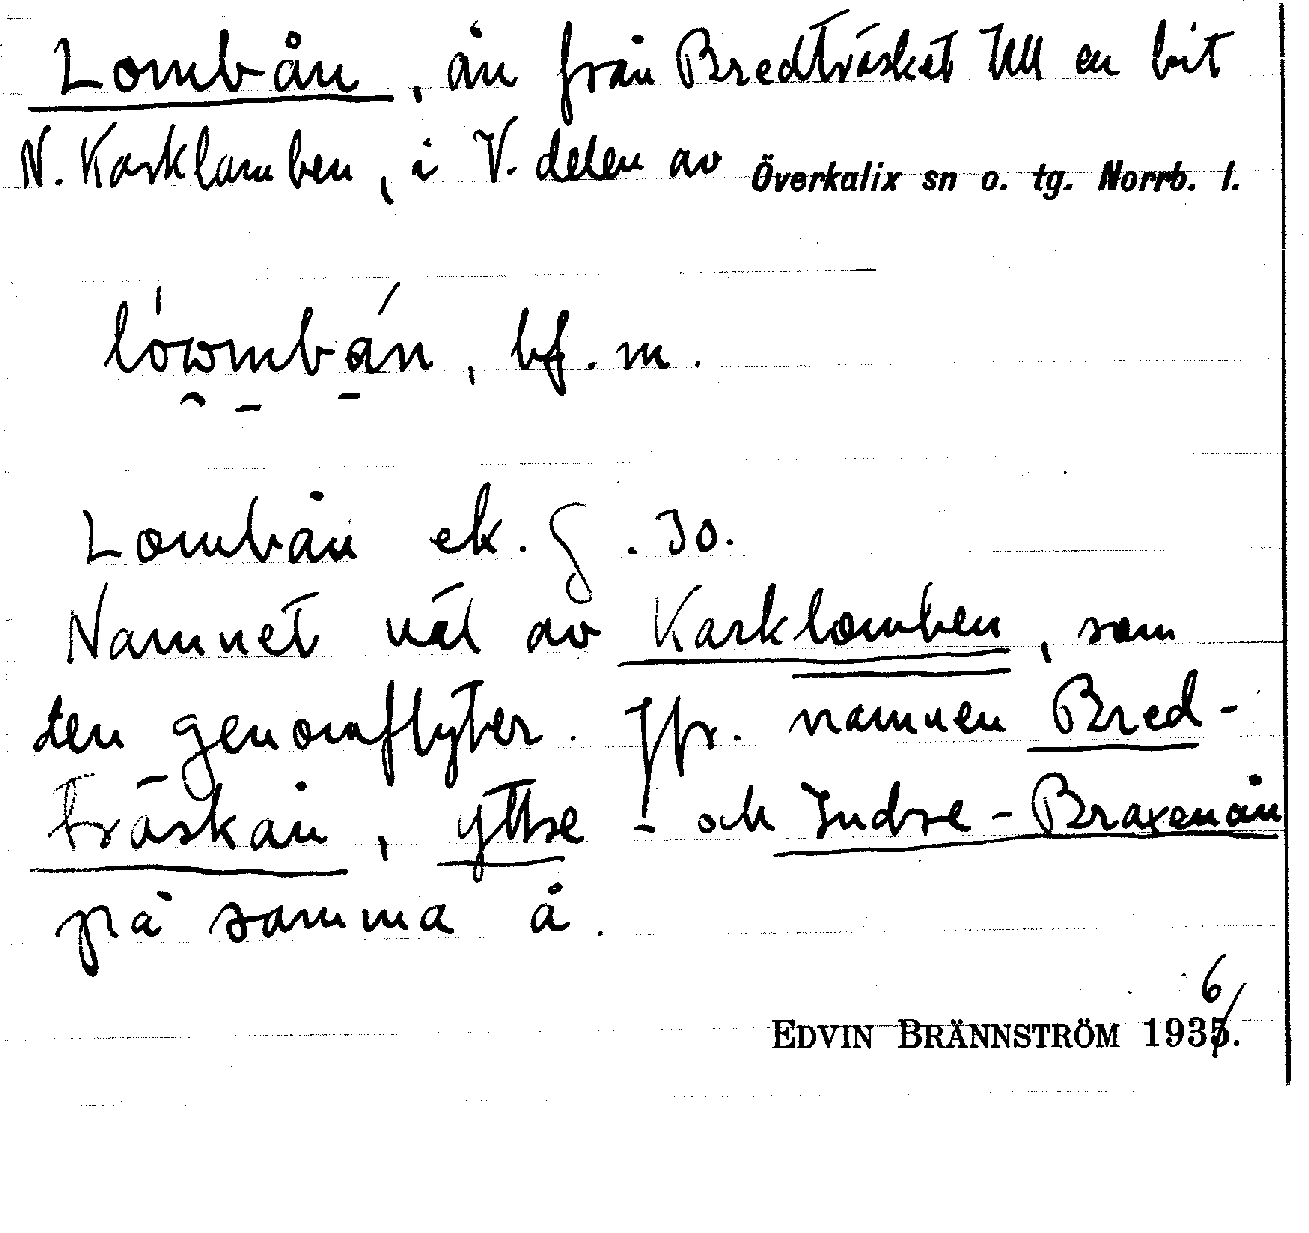 Lombån, ån från Bredträsket till en bit
N. Karklomben, i V. delen av Överkalix sn o. tg. Norrb. l.
lówmbán, bf. m.
Lombån ek. g. 30.
Namnet väl av Karklomben, som
den genomflyter. Jfr. namnen Bred-
träskån, yttre - och Indre - Braxenån
på samma å.
6
EDVIN BRÄNNSTRÖM 1935.